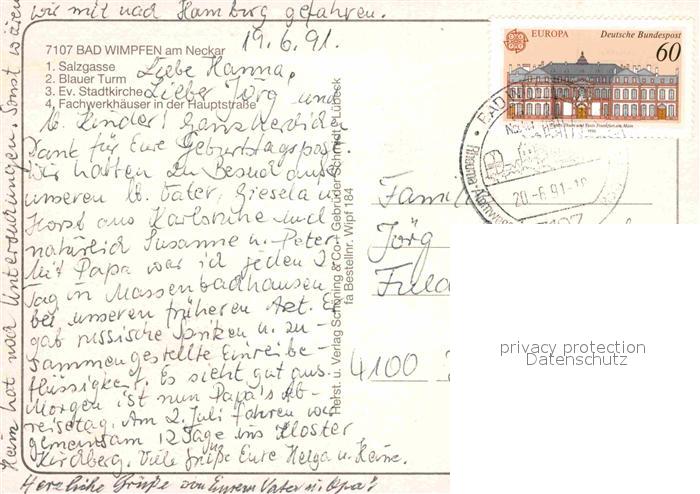 wir mit nach Hamburg gefahren.
19.6.91.
7107 BAD WIMPFEN am Neckar
1. Salzgasse
2. Blauer Turm
3. Ev. Stadtkirche
4. Fachwerkhäuser in der Hauptstraße
Liebe Hanna,
Lieber Jörg und
lb. Kinder! Ganz herzlich
Dank für Eure Geburtstagspost.
Wir hatten zu Besuch außer
unseren lb. Vater, Giesela u.
Horst aus Karlsruhe und
natürlich Susanne u. Peter.
Mit Papa war ich jeden 2.
Tag in Massenbachhausen
bei unseren früheren Arzt. Er
gab russische Spritzen u. zu-
sammengestellte Einreibe-
flüssigkeit. Es sieht gut aus.
Morgen ist nun Papa's Ab-
reisetag. Am 2. Juli fahren wir
gemeinsam 12 Tage ins Kloster
Kirchberg. Viele Grüße Eure Helga u. Heinz.
Herzliche Grüße von Eurem Vater u. Opa!
Heinz hat noch Untersuchungen. Sonst wären
Herst. u. Verlag Schöning & Co + Gebrüder Schmidt · Lübeck
fa Bestellnr. Wipf 184
EUROPA
Deutsche Bundespost
60
BAD
20.-6.91-18
7107
Jörg
4100
privacy protection
Datenschutz